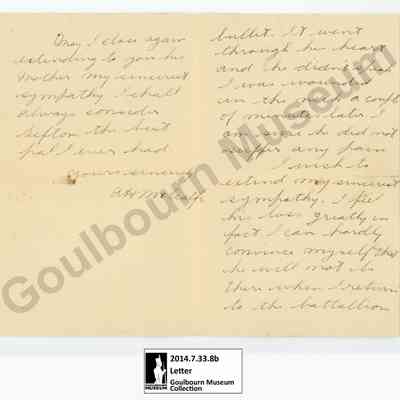 May I close again
extending to you his
Mother my sincerest
sympathy I shall
always consider
Sefton the best
pal I ever had
yours sincerely
bullet. It went
through his heart
and he didn't speak
I was wounded
in the neck a couple
of minutes later I
am sure he did not
suffer any pain
I wish to
extend my sincerest
sympathy. I feel
his loss greatly in
fact I can hardly
convince myself that
he will not be
there when I return
to the battallion
Goulbourn Museum
2014.7.33.8b
Letter
Goulbourn Museum
Collection